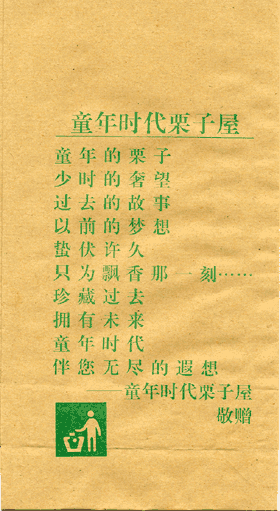 童年时代栗子屋
童年的栗子
少时的奢望
过去的故事
以前的梦想
蛰伏许久
只为飘香那一刻……
珍藏过去
拥有未来
童年时代
伴您无尽的遐想
——童年时代栗子屋
敬赠